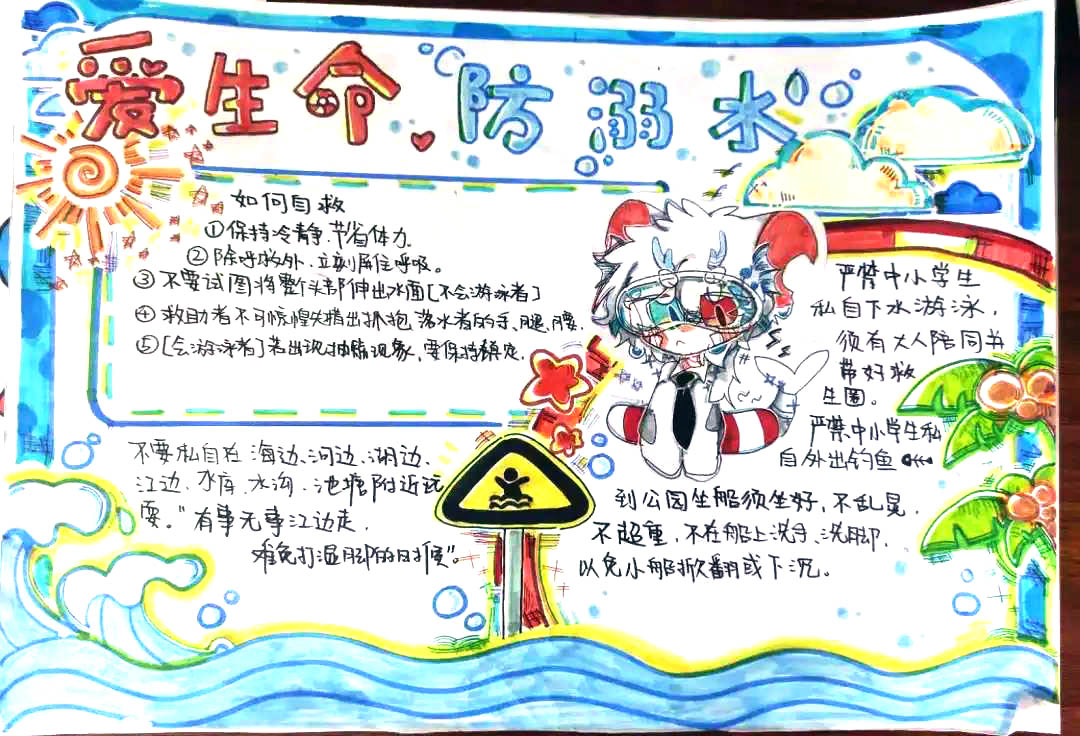 爱生命 防溺水
如何自救
①保持冷静、节省体力.
②除呼救外、立刻屏住呼吸。
③不要试图将整个头部伸出水面[不会游泳者]
④救助者不可惊惶失措出抓抱落水者的手、腿、腰.
⑤[会游泳者]若出现抽筋现象,要保持镇定.
严禁中小学生
私自下水游泳,
须有大人陪同并
带好救
生圈。
严禁中小学生私
自外出钓鱼
不要私自在海边、河边、湖边、
江边、水库、水沟、池塘附近玩
耍。"有事无事江边走,
难免打湿脚的时候"。
到公园坐船须坐好,不乱晃,
不超重,不在船上洗手、洗脚,
以免小船掀翻或下沉。